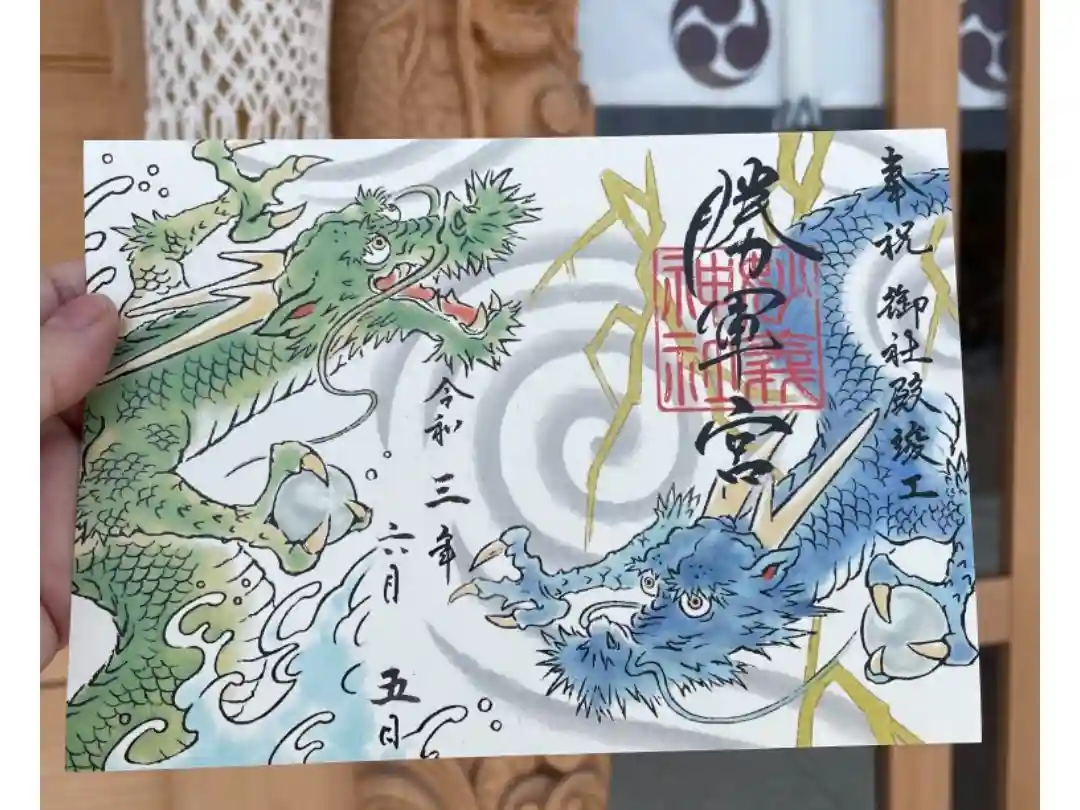 奉祝 御社殿竣工
勝軍宮
妙義
神社
令和三年
六月五日